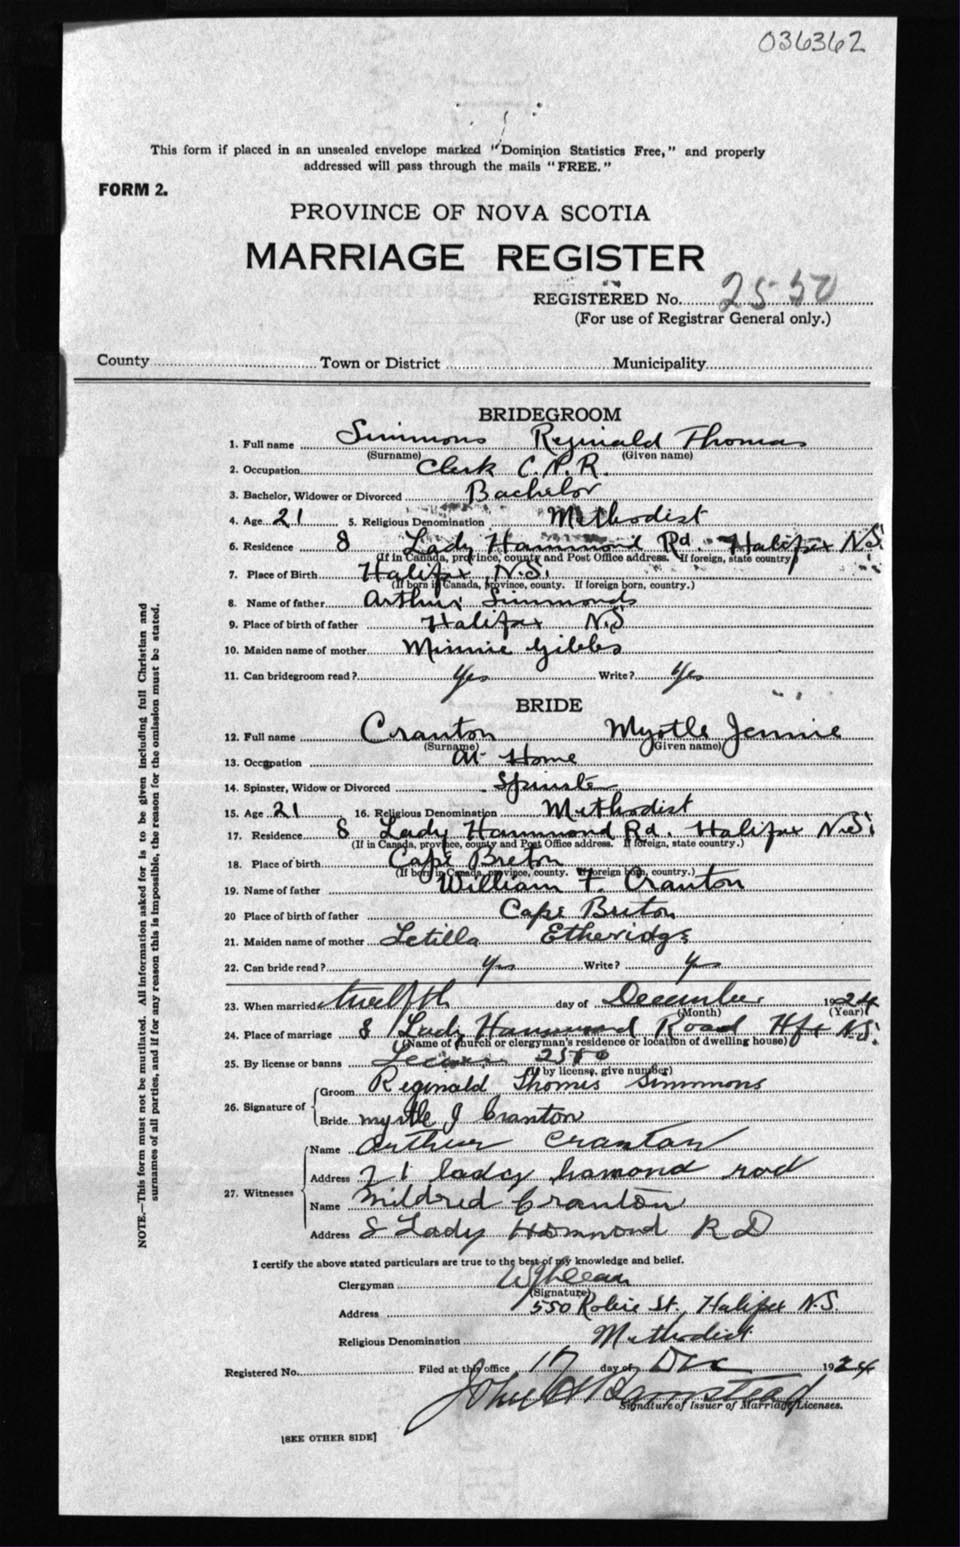 036362
This form if placed in an unsealed envelope marked "Dominion Statistics Free," and properly
addressed will pass through the mails "FREE."
FORM 2.
PROVINCE OF NOVA SCOTIA
MARRIAGE REGISTER
REGISTERED No. 2550
(For use of Registrar General only.)
County Town or District Municipality
BRIDEGROOM
1. Full name Simmons Reginald Thomas
(Surname) (Given name)
2. Occupation Clerk C.N.R.
3. Bachelor, Widower or Divorced Bachelor
4. Age 21 5. Religious Denomination Methodist
6. Residence 8 Lady Hammond Rd. Halifax N.S.
(If in Canada, province, county and Post Office address. If foreign, state country)
7. Place of Birth Halifax N.S.
(If born in Canada, province, county. If foreign born, country.)
8. Name of father Arthur Simmonds
9. Place of birth of father Halifax N.S
10. Maiden name of mother Minnie Gibbs
11. Can bridegroom read? Yes Write? Yes
BRIDE
12. Full name Cranton Myrtle Jennie
(Surname) (Given name)
13. Occupation At Home
14. Spinster, Widow or Divorced Spinster
15. Age 21 16. Religious Denomination Methodist
17. Residence 8 Lady Hammond Rd. Halifax N.S.
(If in Canada, province, county and Post Office address. If foreign, state country.)
18. Place of birth Cape Breton
(If born in Canada, province, county. If foreign born, country.)
19. Name of father William F. Cranton
20 Place of birth of father Cape Breton
21. Maiden name of mother Letilla Etheridge
22. Can bride read? yes Write? yes
23. When married twelfth day of December 1924
(Month) (Year)
24. Place of marriage 8 Lady Hammond Road Hfx N.S.
(Name of church or clergyman's residence or location of dwelling house)
25. By license or banns License 2550
(If by license, give number)
26. Signature of
Groom Reginald Thomas Simmons
Bride myrtle J Cranton
27. Witnesses
Name Arthur Cranton
Address 21 lady hamond rod
Name Mildred Cranton
Address 8 Lady Hommond RD
I certify the above stated particulars are true to the best of my knowledge and belief.
Clergyman
(Signature)
Address 550 Robie St., Halifax N.S.
Religious Denomination Methodist
Registered No. Filed at this office 17 day of Dec 1924
John
Signature of Issuer of Marriage Licenses.
[SEE OTHER SIDE]
NOTE.—This form must not be mutilated. All information asked for is to be given including full Christian and
surnames of all parties, and if for any reason this is impossible, the reason for the omission must be stated.